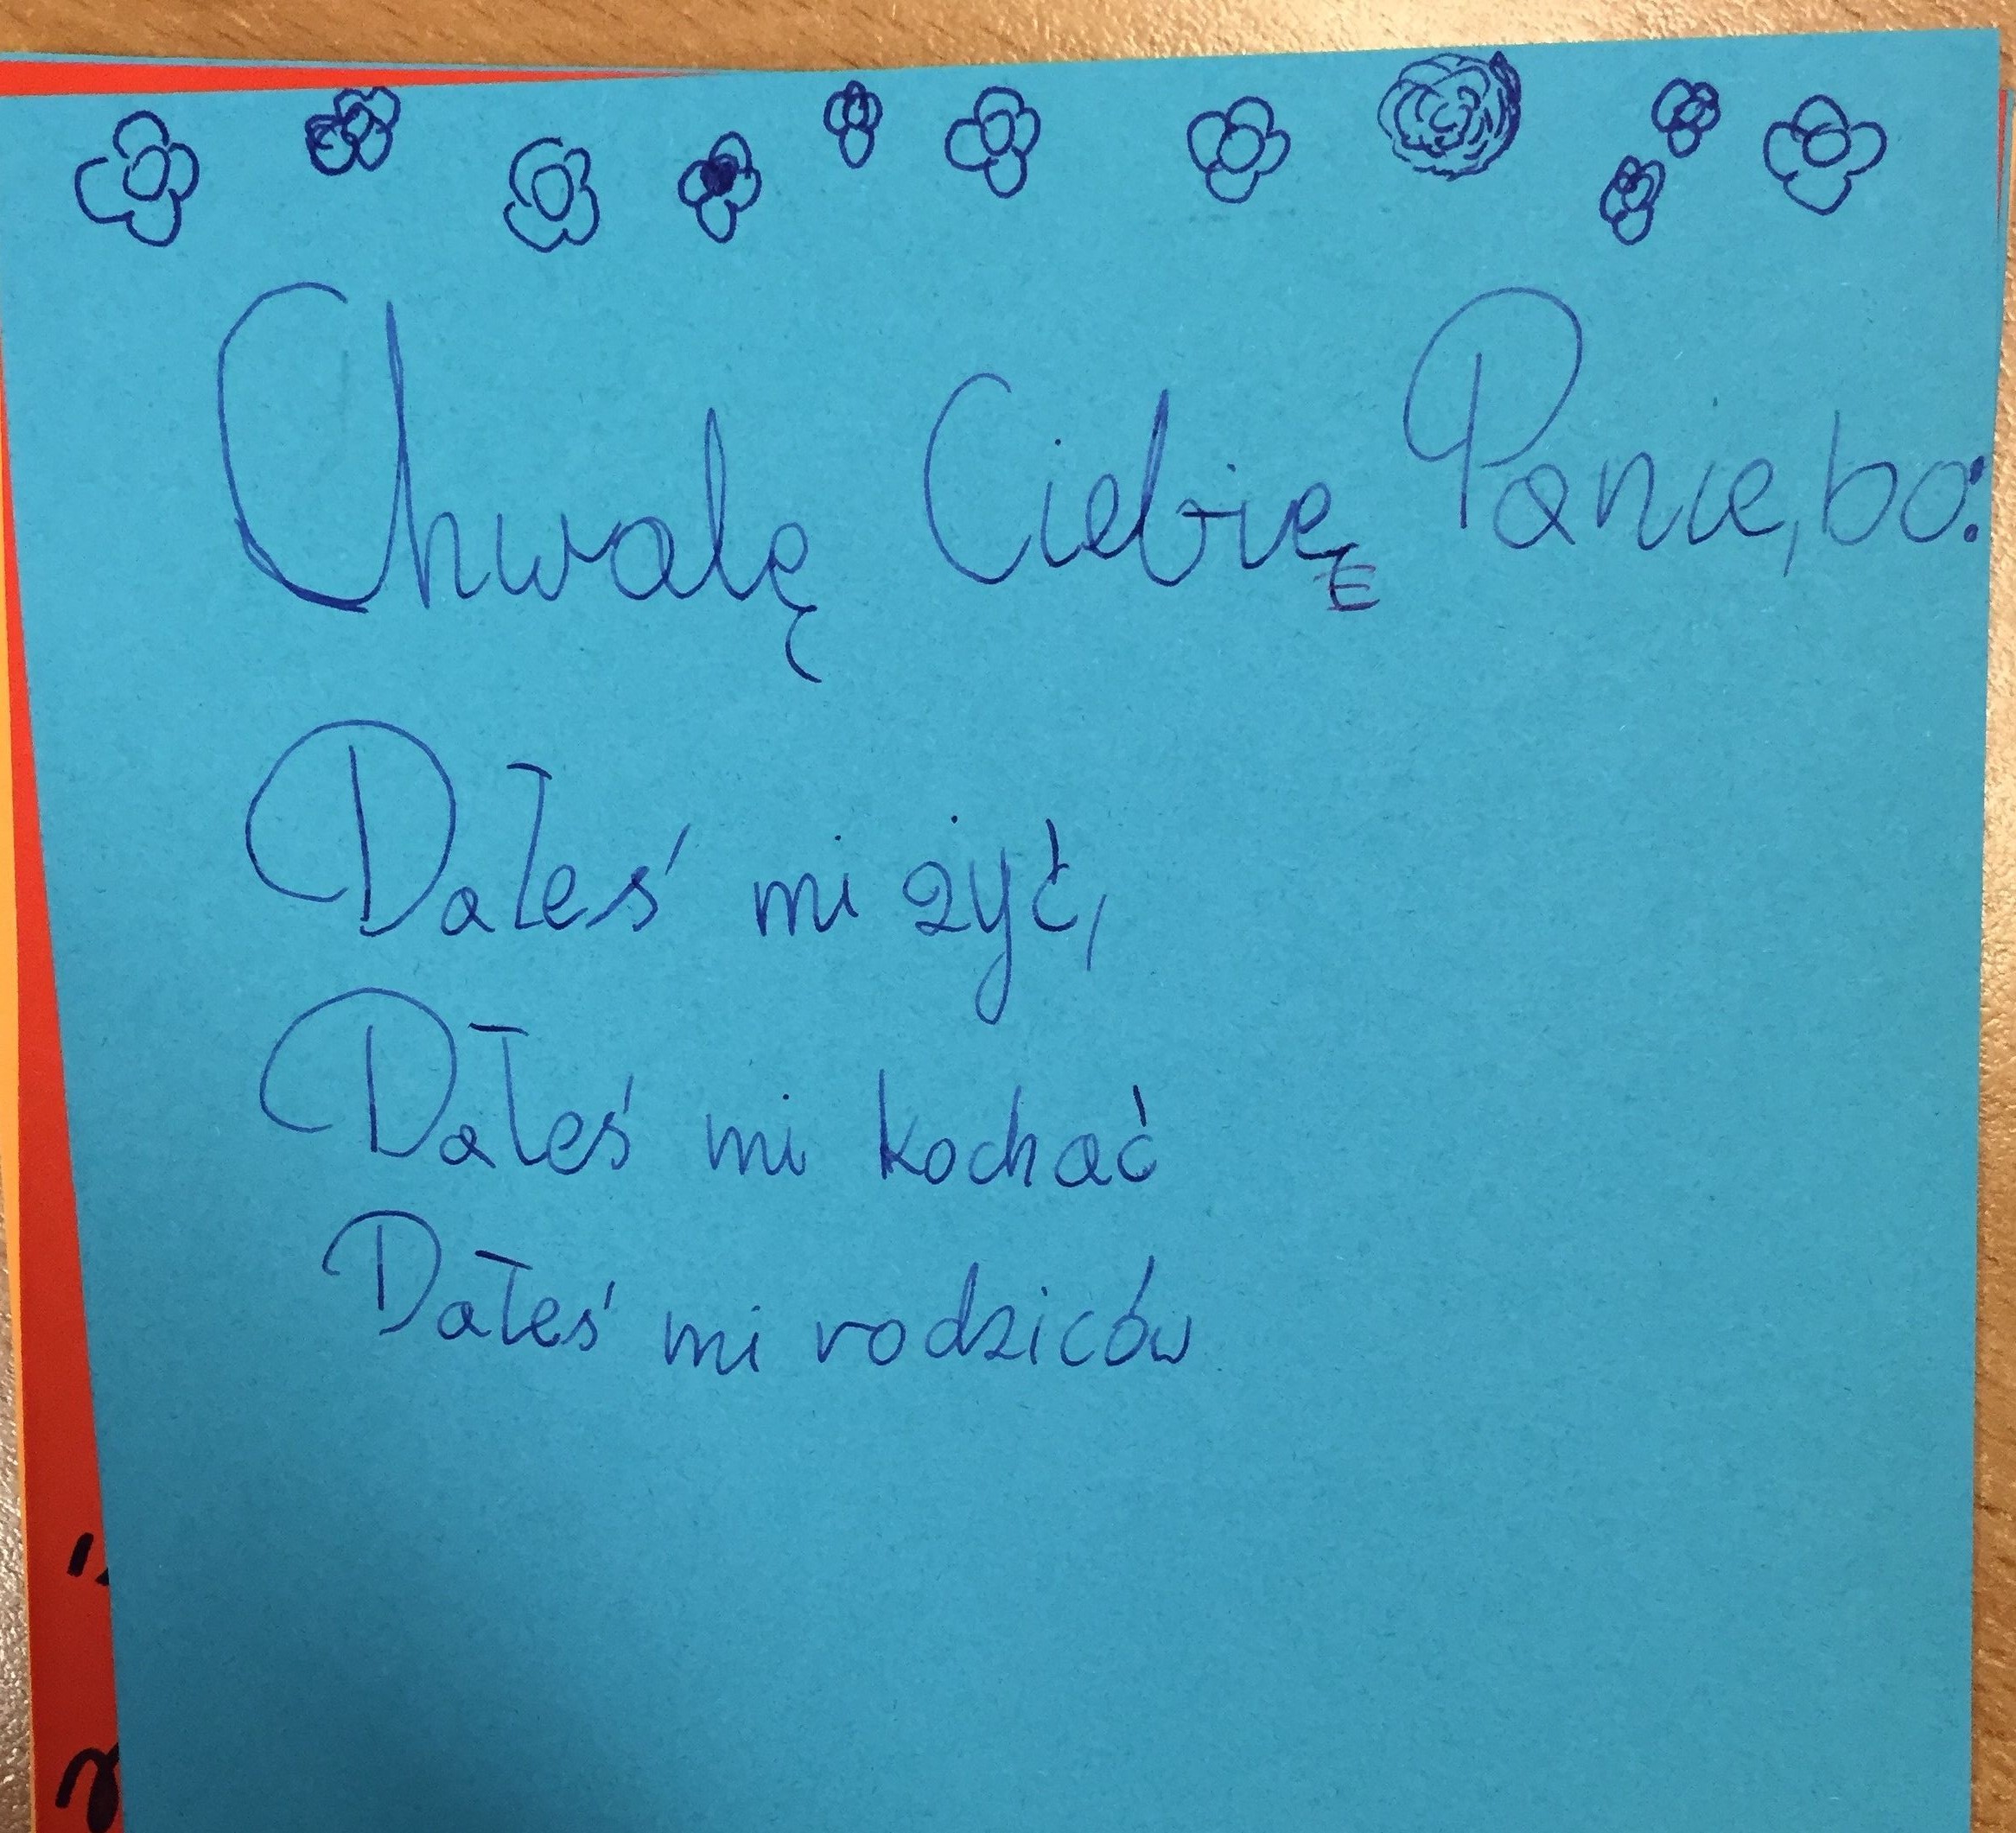 Chwalę Ciebie Panie, bo:
Dałeś mi żyć,
Dałeś mi kochać
Dałeś mi rodziców